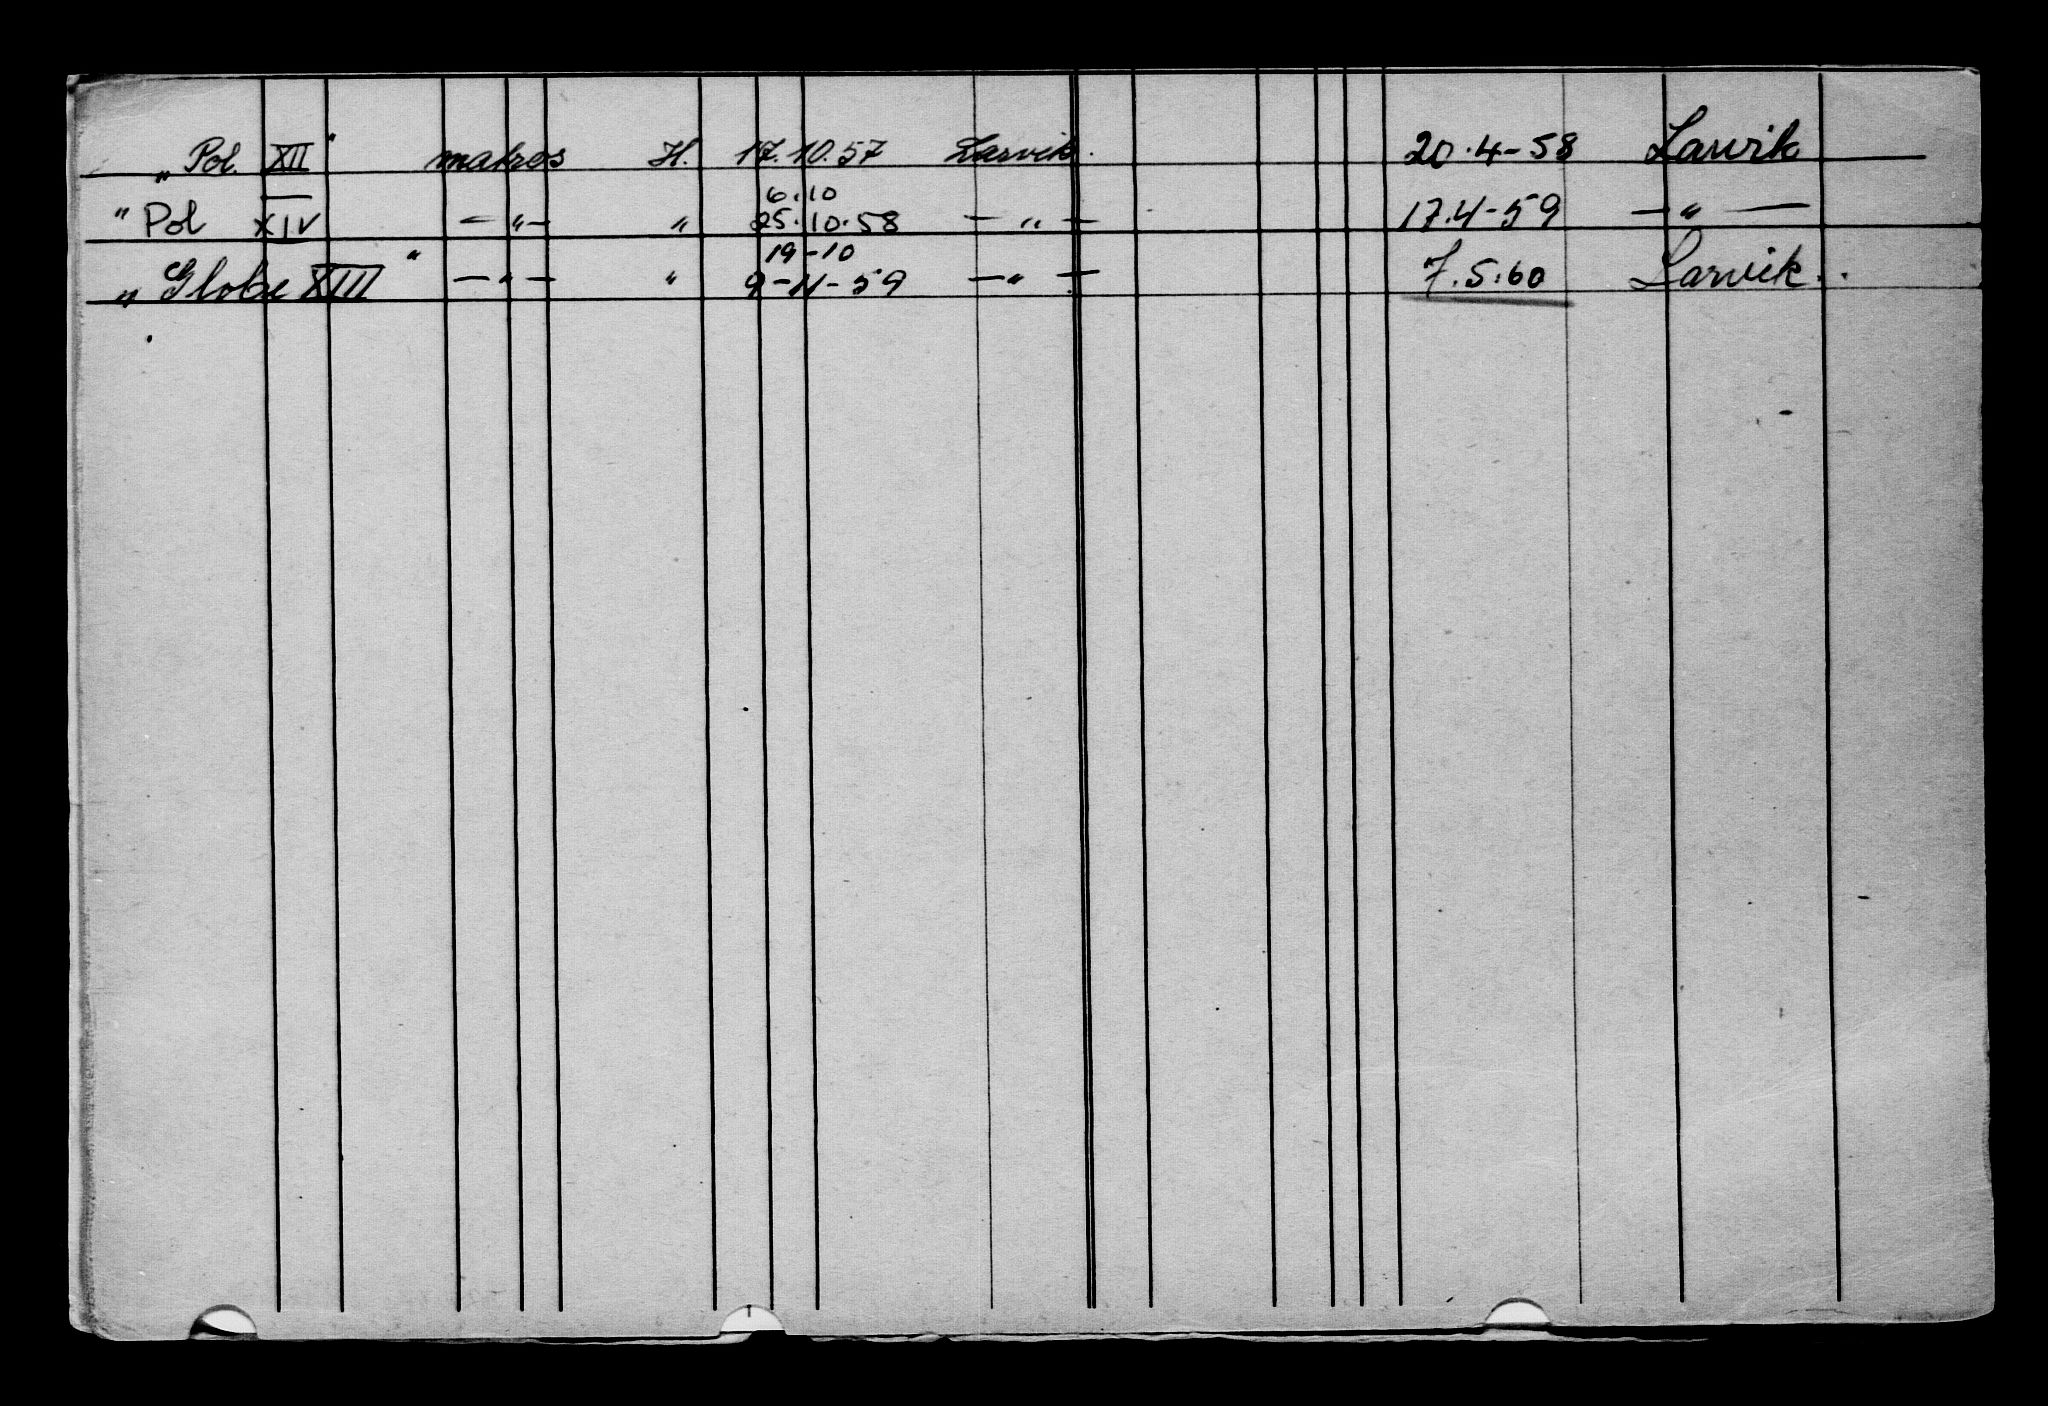 „ Pol. XII " matros H. 17.10.57 Larvik. 20.4-58 Larvik
6.10
" Pol XIV — „ — „ 25.10.58 — „ — 17.4-59 — „ —
19-10
„ Globe XIII " — „ — „ 9-11-59 — „ — 7.5.60 Larvik.